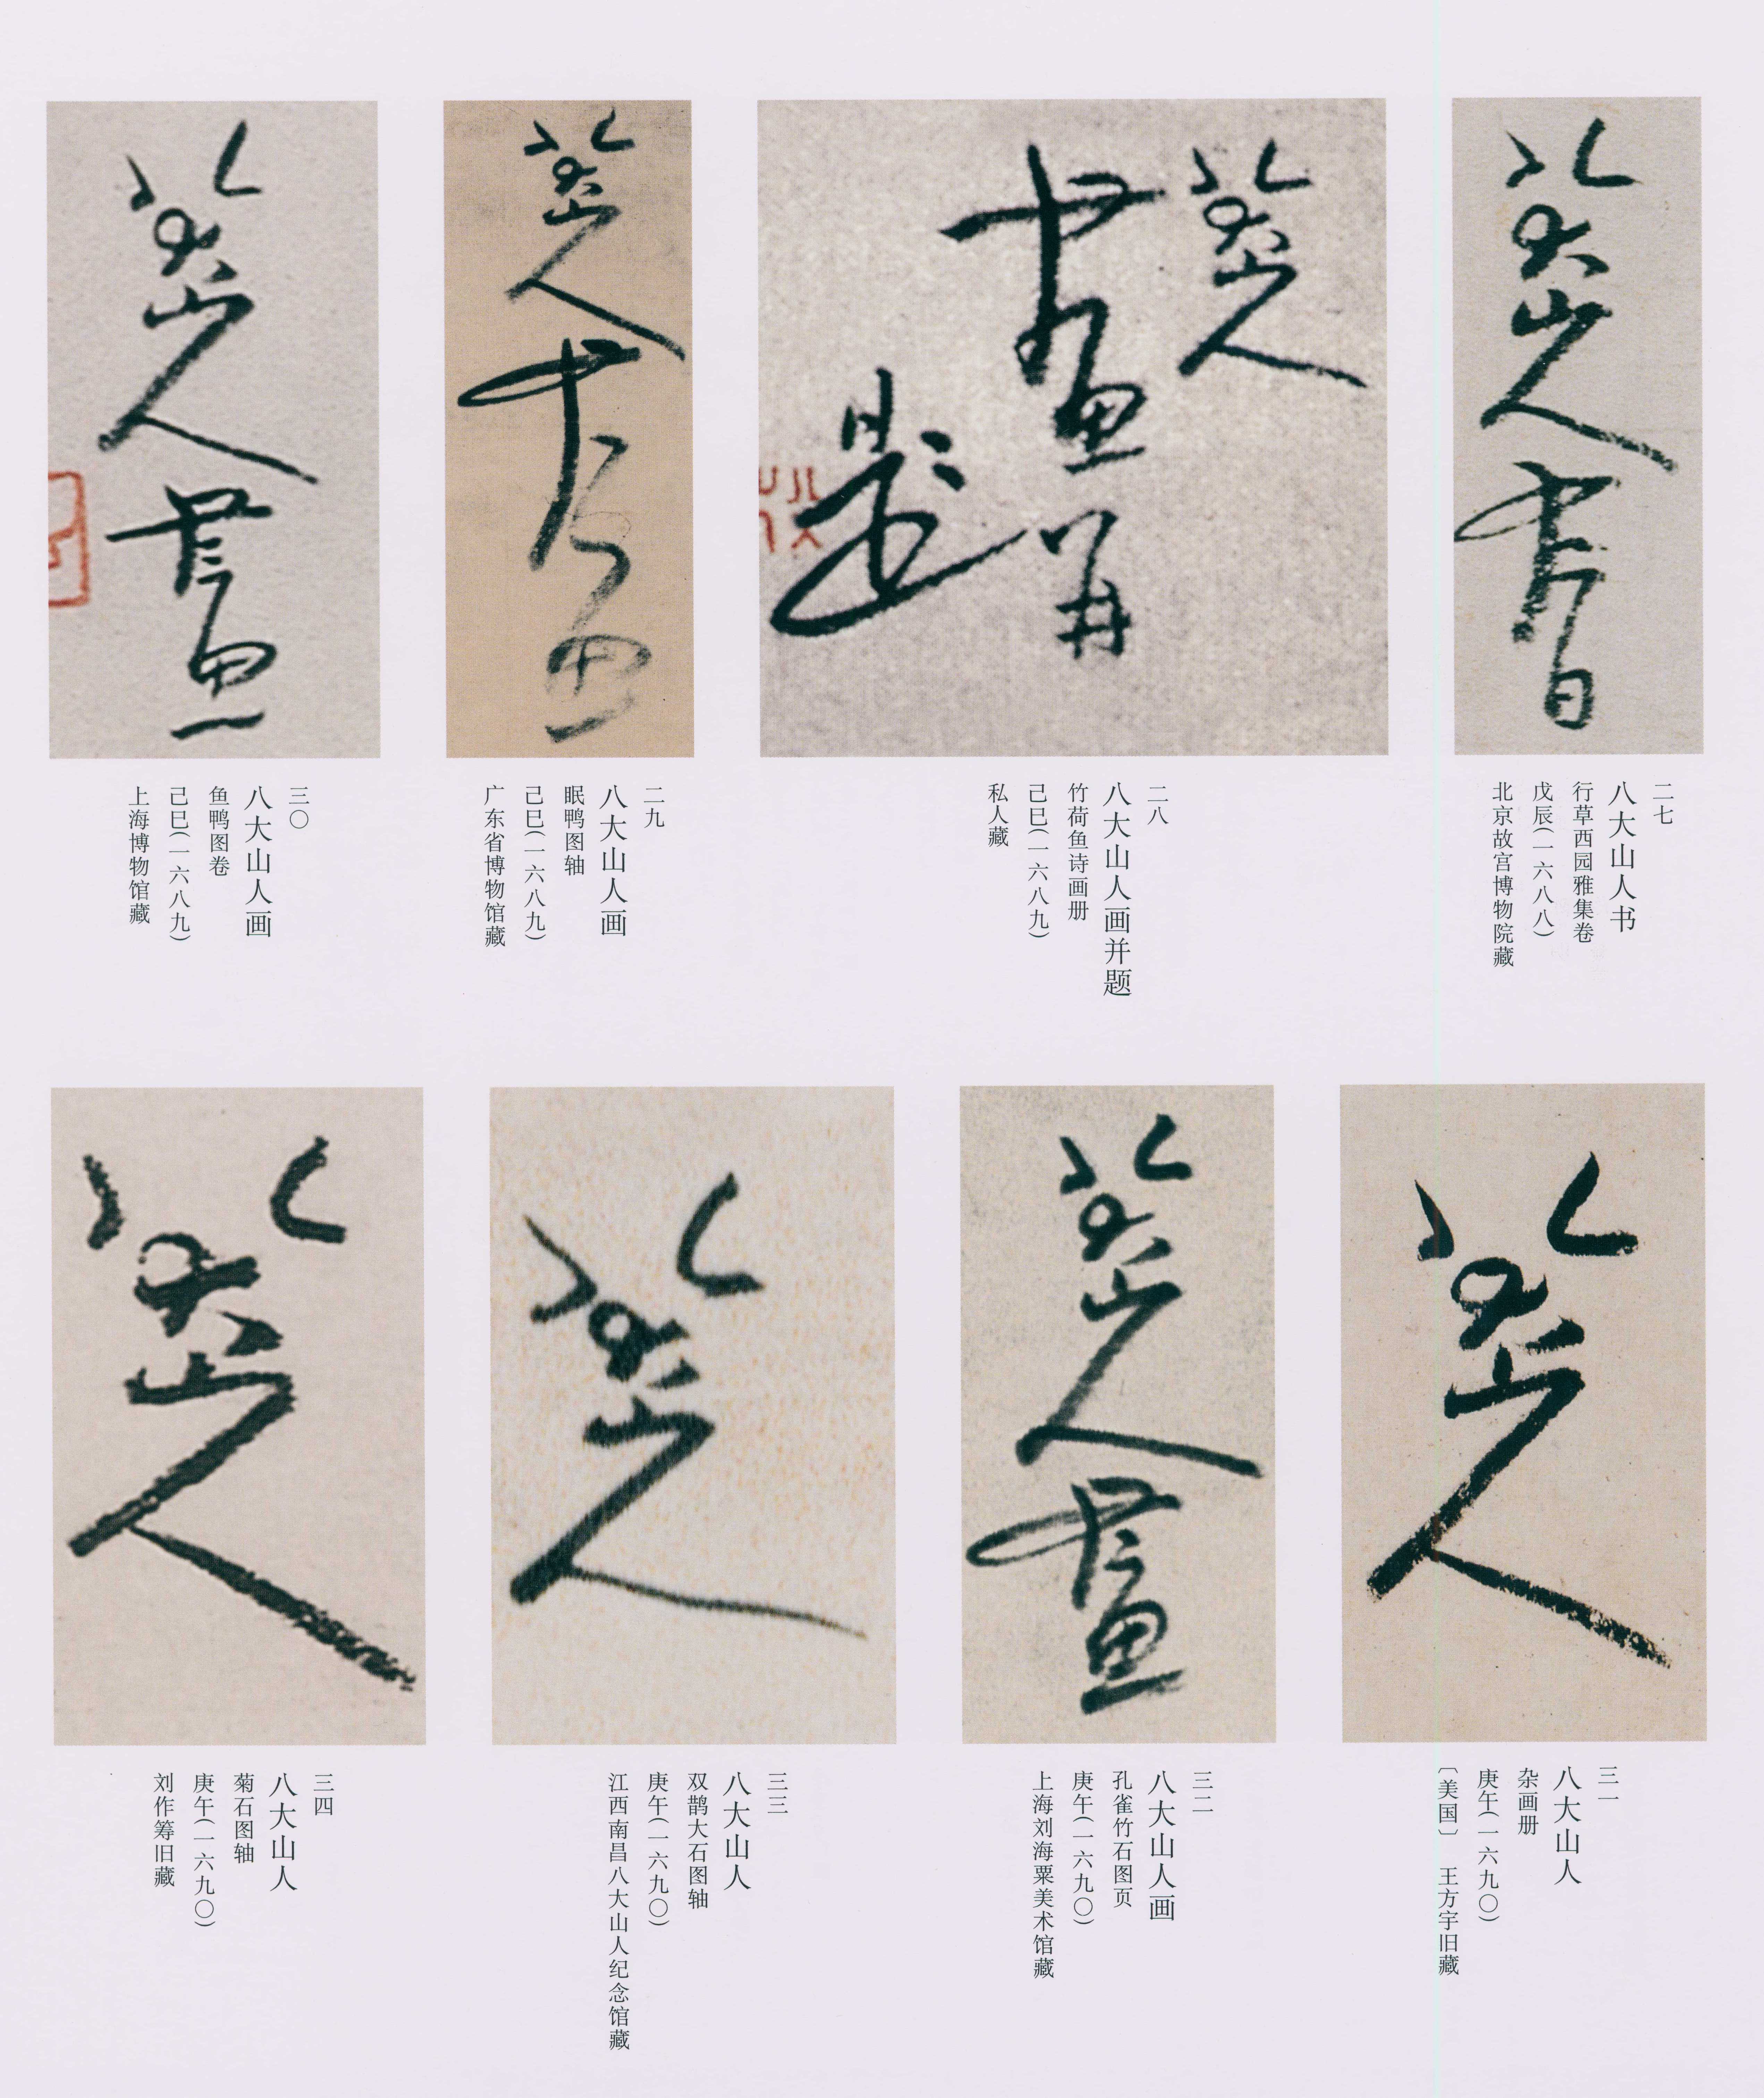 八大山人書
二七
八大山人书
行草西园雅集卷
戊辰(一六八八)
北京故宫博物院藏
八大山人
畫并
題
二八
八大山人画并题
竹荷鱼诗画册
己巳(一六八九)
私人藏
八大山人畫
二九
八大山人画
眠鸭图轴
己巳(一六八九)
广东省博物馆藏
八大山人畫
三〇
八大山人画
鱼鸭图卷
己巳(一六八九)
上海博物馆藏
八大山人
三一
八大山人
杂画册
庚午(一六九〇)
〔美国〕 王方宇旧藏
八大山人畫
三二
八大山人画
孔雀竹石图页
庚午(一六九〇)
上海刘海粟美术馆藏
八大山人
三三
八大山人
双鹊大石图轴
庚午(一六九〇)
江西南昌八大山人纪念馆藏
八大山人
三四
八大山人
菊石图轴
庚午(一六九〇)
刘作筹旧藏